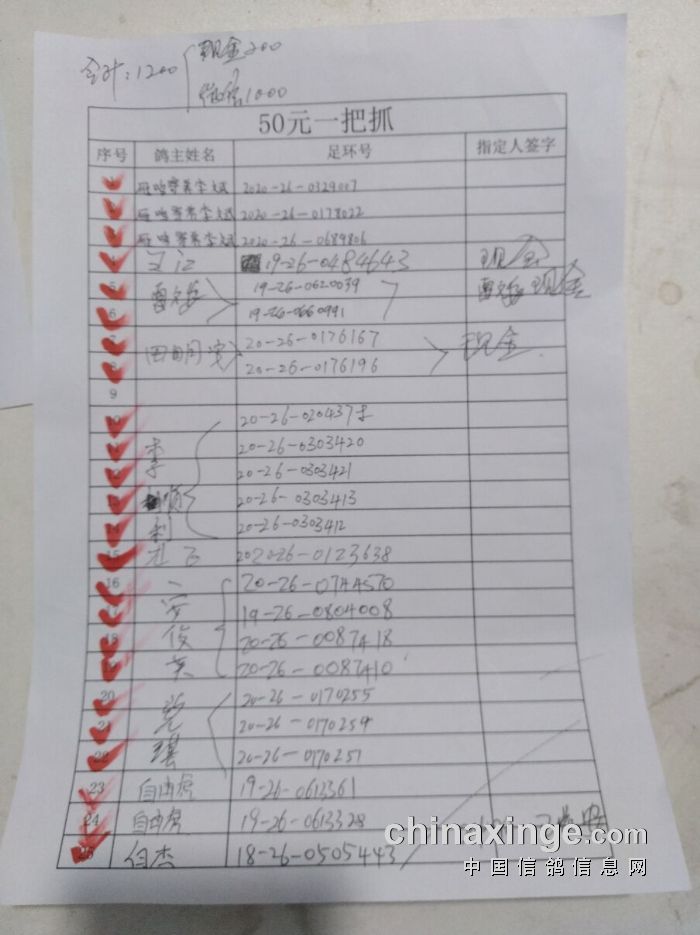 合计：1200 现金200
微信1000
50元一把抓
序号 鸽主姓名 足环号 指定人签字
2020-26-0329007
2020-26-0178022
2020-26-0689806
19-26-0484643 现金
5 19-26-0620039 现金
6 19-26-0660991
7 田明宽 20-26-0176167 现金
8 20-26-0176196
9
10 20-26-020437
李 20-26-0303420
20-26-0303421
顺 20-26-0303413
利 20-26-0303412
15 孔飞 2020-26-0123638
16 20-26-0744570
17 安 19-26-0804008
18 俊 20-26-0087418
19 英 20-26-0087410
20 20-26-0170255
21 20-26-0170259
22 20-26-0170251
23 自由虎 19-26-0613361
24 自由虎 19-26-0613328
25 白杰 18-26-0505443
chinaxinge.com
中国信鸽信息网